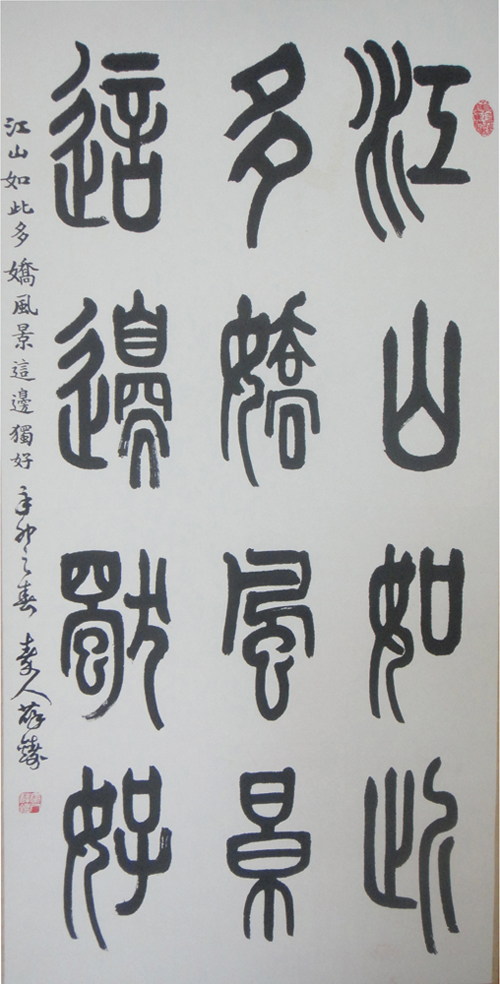 江山如此
多嬌風景
這邊獨好
江山如此多嬌風景這邊獨好 辛卯之春